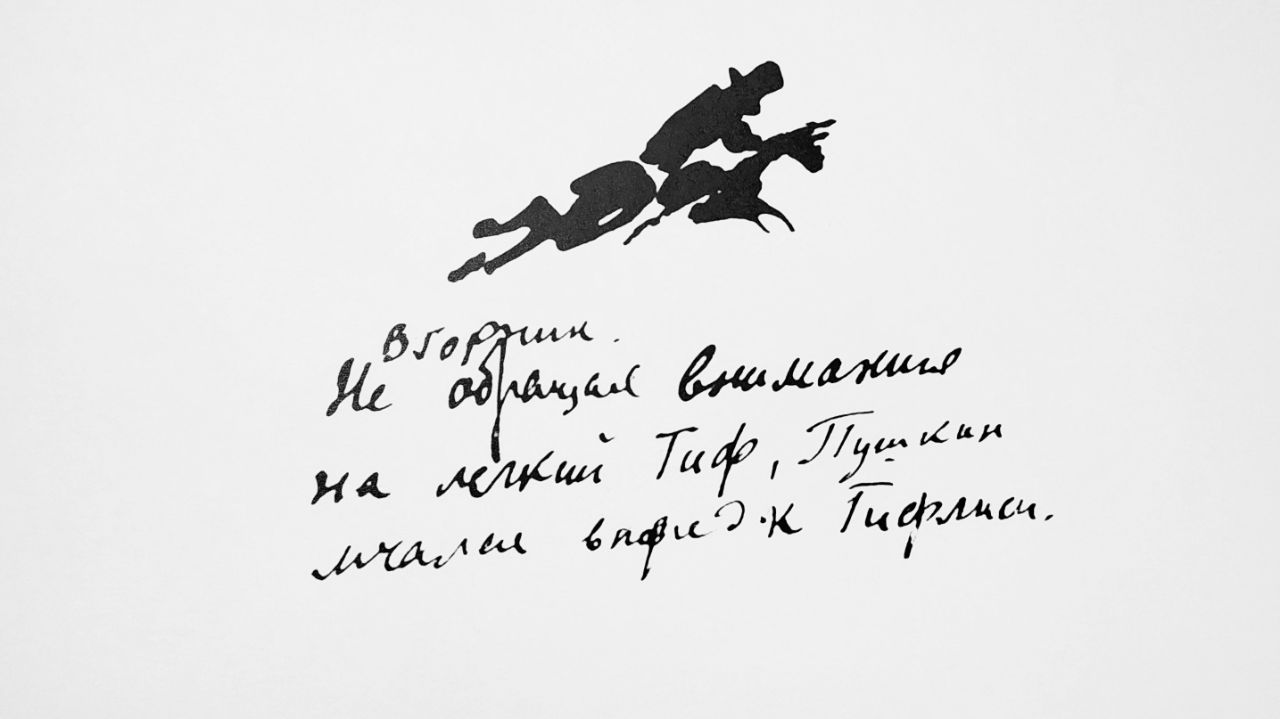 Вторник.
Не обращая внимания
на легкий Тиф, Пушкин
мчался вперед к Тифлиси.